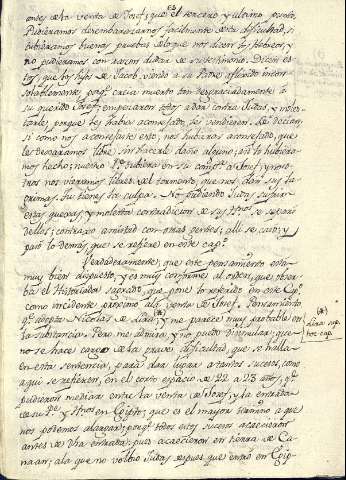 antes de la venta de Josef; que es el tercero y ultimo punto.
Pudieramos desembarazarnos facilmente de esta dificultad, si
tubieramos buenas pruebas de lo que nos dicen los Hebreos; y
no pudieramos con razon dudar de su testimonio. Dicen es-
tos, que los hijos de Jacob, viendo a su Padre afligido incon-
solablemente, porq.e creia muerto tan desgraciadamente a
su querido Josef, empezaron todos a dar contra Judas, y moles-
tarle, porque les habia aconsejado se vendiesen. Le decian,
si como nos aconsejaste esto, nos hubieras aconsejado, que
le dexaramos libre, sin hacerle daño alguno, asi lo hubiera-
mos hecho; nuestro P.e tubiera en su comp.a a Josef, y noso-
tros nos vieramos libres del tormento, que nos dan sus la-
grimas: tu tienes la culpa. No pudiendo Judas sufrir
estas quexas, y molesta contradicion de sus Hnos se separó
dellos; contraxo amistad con otras gentes; alli se casó; y
pasó lo demás, que se refiere en este cap.o
Verdaderamente, que este pensamiento está
muy bien dispuesto, y es muy conforme al orden, que obser-
ba el Historiador sagrado, que pone lo referido en este Cap.o
como incidente proximo a la venta de Josef. Pensamiento
q.e adopta Nicolas de Lira (*) y me parece muy probable en
la substancia. Pero me admira, y no puedo disimular, que
no se hace cargo de la grave dificultad, que se halla
en esta sentencia, para dar lugar a tantos sucesos, como
aqui se refieren, en el corto espacio de 22 a 23 años, q.e
pudieron mediar entre la venta de Josef, y la entrada
de su P.e y Hnos en Egipto; que es el mayor termino a que
nos podemos alargar; porq.e todos estos sucesos acaecieron
antes de dha entrada; pues acaecieron en tierra de Ca-
naan; a la que no volvio Judas despues que entró en Egip-
(*)
Lira sup.
hoc cap.